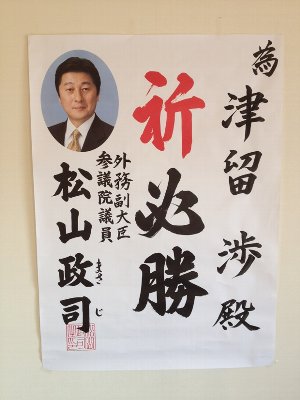 為
津留 渉 殿
祈必勝
外務副大臣
参議院議員
松山政司
まさ じ